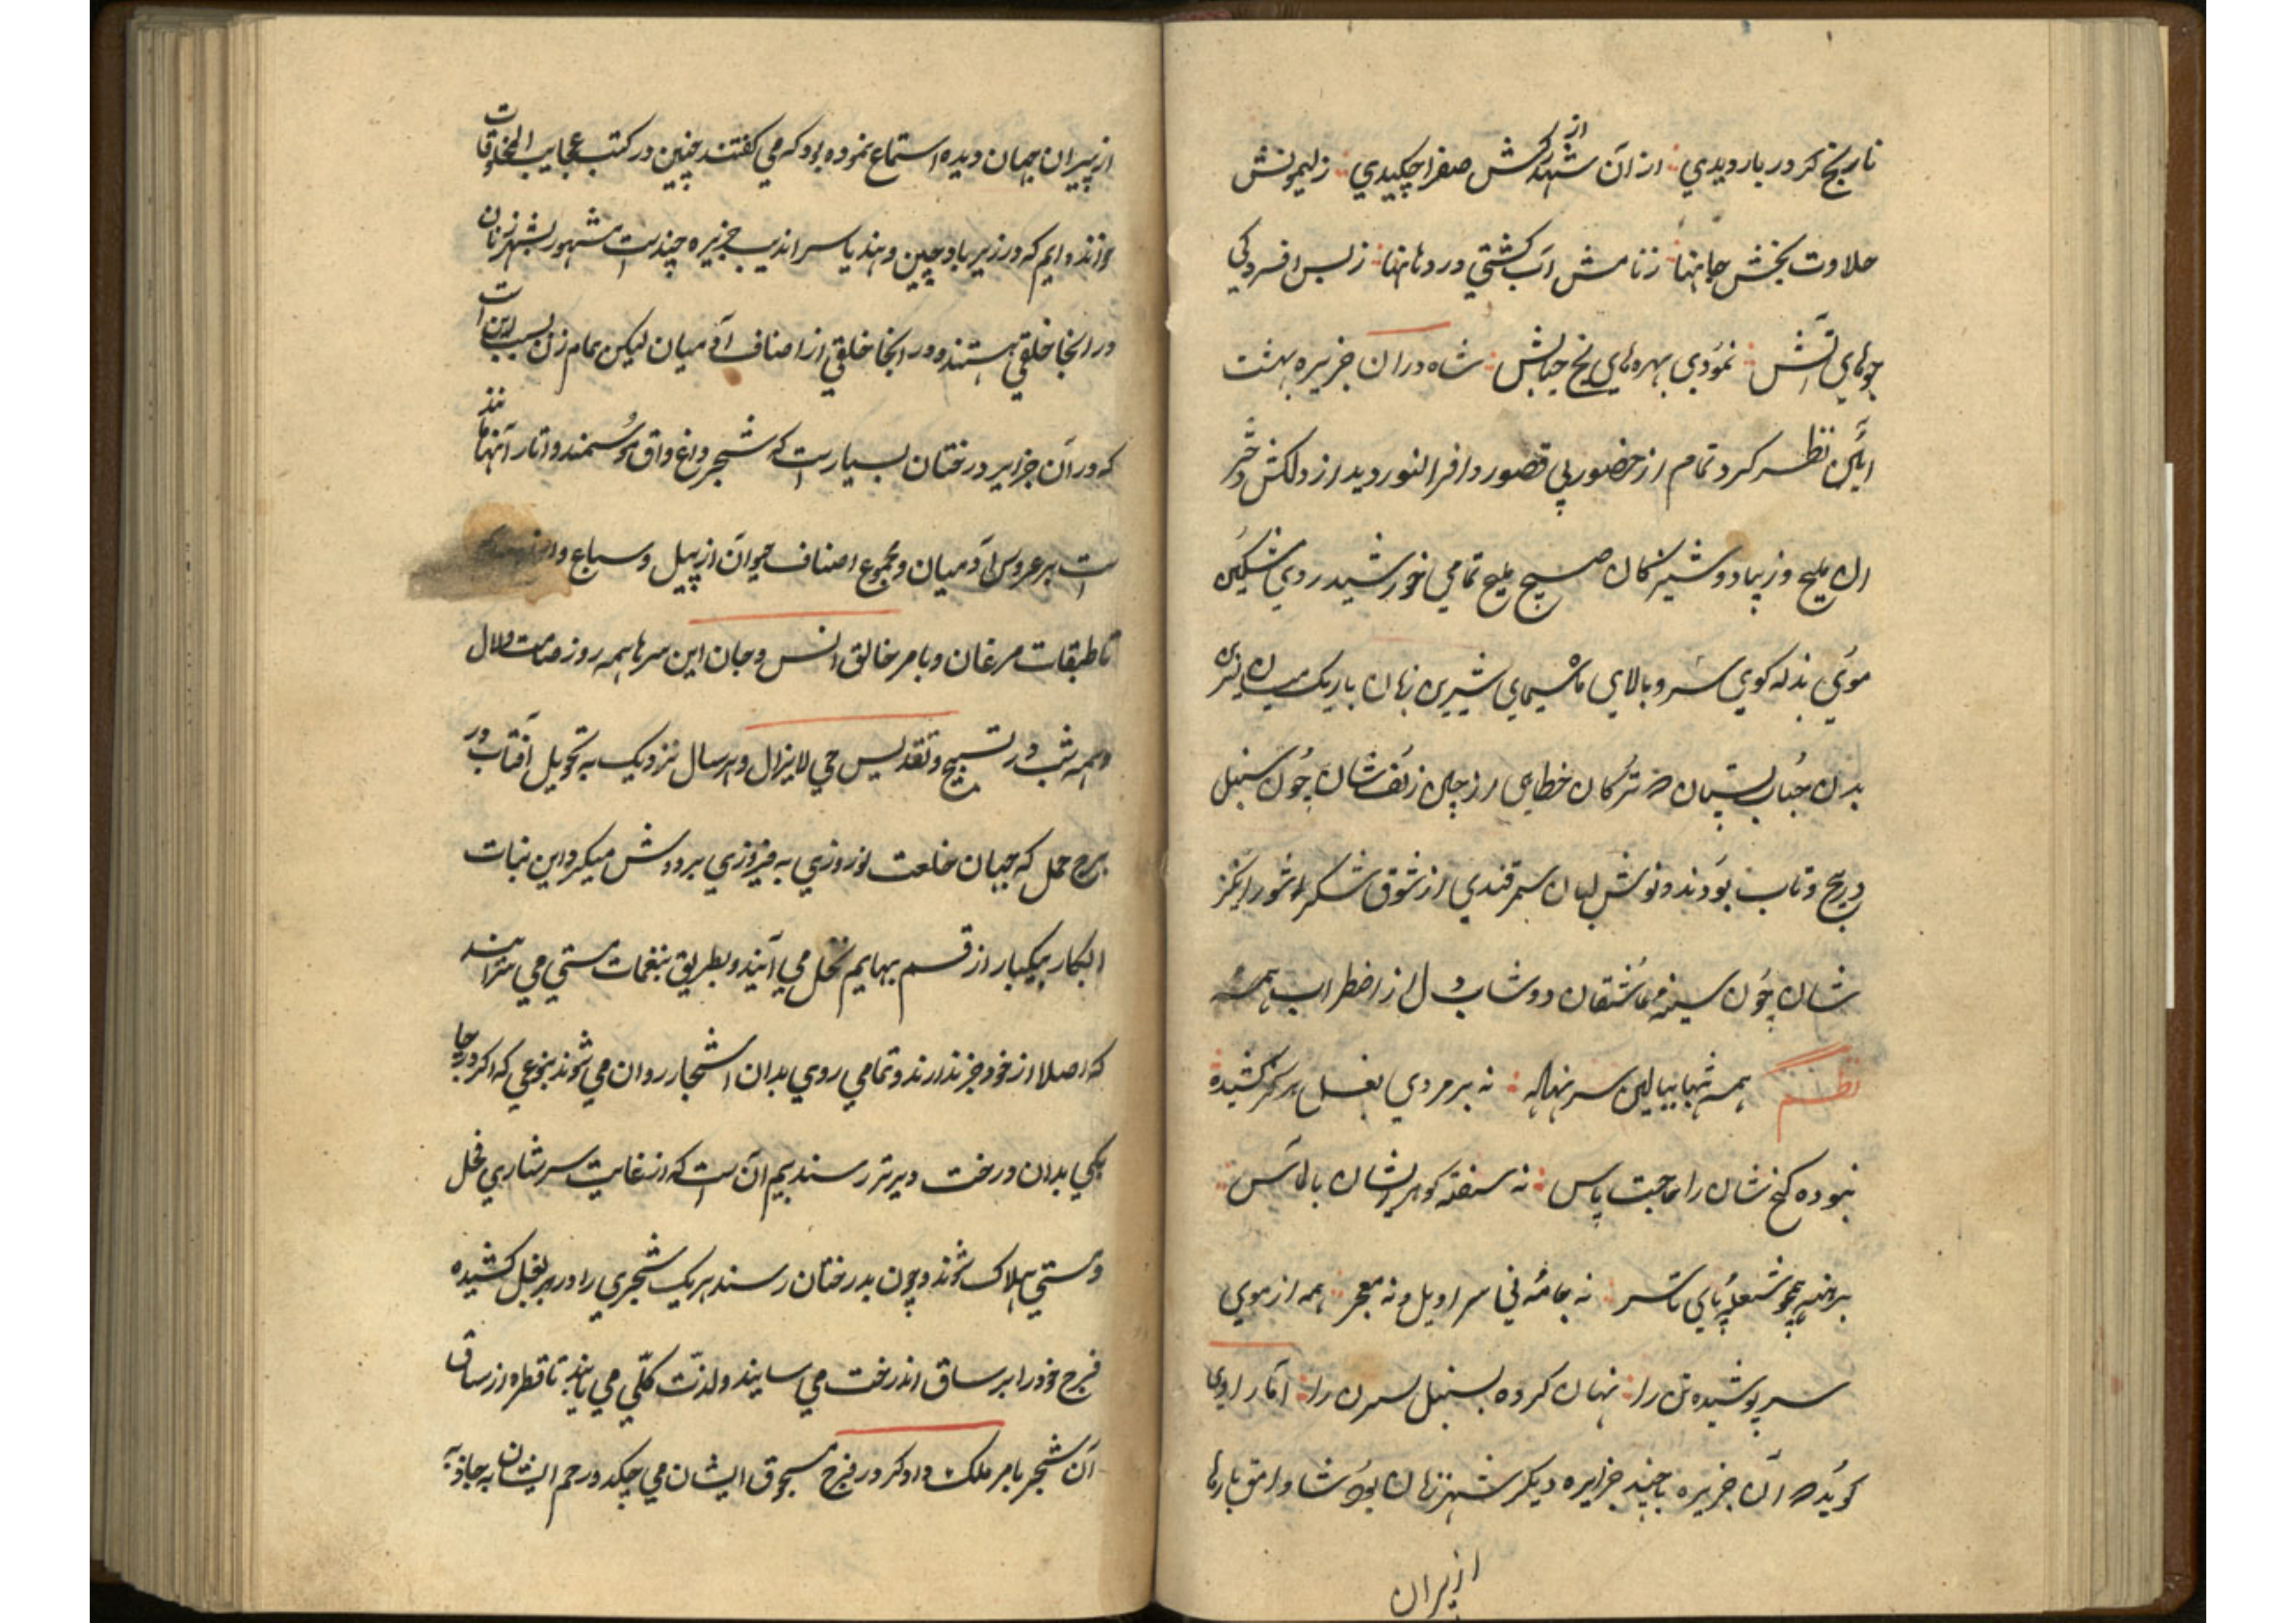 نارنج کز در بار دیدی از آن شهد کش صفرا چکیدی ز لیمونش
از
حلاوت بخش جانها ز نامش آب کشتی در دهانها ز بس افسردکی
جوهای آتش نمودی بهره‌های یخ حبابش شاه در ان جزیره بهشت
آیین نظر کرد تمام از حضور بی قصور وافر النور دید از دلکش دختر
ان ملیح و زیبا دوشیزکان صبیح ملیح تمامی خورشید روی مشکین
موی بذله کوی سرو بالای سیمای شیرین زبان باریک میان
بدن حباب پستان ترکان خطایی زلف شان چون سنبل
در پیچ و تاب بودند و نوش لبان سمرقندی از شوق شکر شورانکیز
شان چون سینه عاشقان دوشاب دل از اضطراب همه
نظم همه شبها ببالین سر نهاده نه بر مردی بغل هرکز کشیده
نبوده کنج شان را حاجت پاس نه سفته کوهر ایشان بالماس
برهنه همچو شعله پای تا سر نه جامه نی سراویل و نه معجر همه از موی
سر پوشیده تن را نهان کرده بسنبل نسرن را اما راوی
کوید که آن جزیره با چند جزایره دیکر شهر زنان بود شاه وامق بارها
از پیران
از پیران جهان دیده استماع نموده بود که می کفتند چنین در کتب عجایب المخلوقات
خوانده ایم که در زیر باد چین و هند یا سراندیب جزیره چندست مشهور بشهر زنان
در انجا خلقی هستند و در انجا خلقی از اصناف آدمیان لیکن تمام زن بسبب این است
که در آن جزایر درختان بسیارست که شجر واغ واق موسمند و اثار آنها مانند
است بر عروس آدمیان و مجموع اصناف حیوان از پیل و سباع و
تا طبقات مرغان و بامر خالق انس و جان این سرها همه روز صامت و لال
و همه شب در تسبیح و تقدیس حی لایزال و هر سال نزدیک به تحویل آفتاب در
برج حمل که جهان خلعت نوروزی به فیروزی بر دوش میکرد این بنات
ابکار بیکبار از قسم بهایم نحل می آیند و بطریق بنغمات مستی می سرایند
که اصلا از خود خبر ندارند و تمامی روی بدان اشجار روان می شوند بنوعی که اکر در جا
یکی بدان درخت دیرتر رسند بیم آن ست که از غایت سرشاری نحل
و مستی هلاک شوند و چون بدرختان رسند هر یک شجری را در بر بغل کشیده
فرج خود را بر ساق اندرخت می سایند و لذت کلی می یابند تا قطره از ساق
آن شجر بامر ملک داوکر در فرج مسحوق ایشان می چکد و رحم ایشان به جاذبه